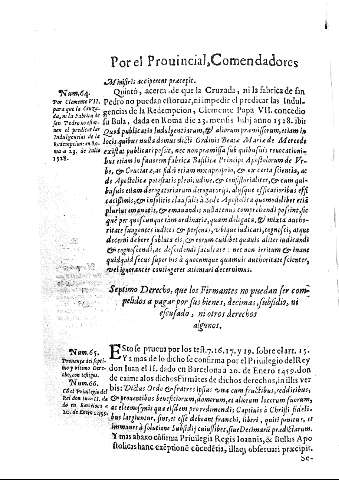 Por el Prouincial, Comendadores
Ministris acciperent præcepit.
Num.64.
Por Clemente VII.
para que la Cruza-
da, ni la Fabrica de
san Pedro no estor-
uen el predicar las
Indulgencias de la
Redempcion: en Ro-
ma a 23. de Iulio
1528.
Quinto, acerca de que la Cruzada, ni la fabrica de san
Pedro no puedan estoruar, ni impedir el predicar las Indul-
gencias de la Redempcion, Clemente Papa VII. concedio
su Bula, dada en Roma die 23. mensis Iulij anno 1528. ibi:
Quod publicatio Indulgentiarum, & aliorum præmissorum, etiam in
locis quibus non domus dicti Ordinis Beatæ Mariæ de Mercede
existat publicari possit, nec non præmissa sub quibusuis reuocationi-
bus etiam in fauorem fabricæ Basilicæ Principis Apostolorum de Vr-
be, & Cruciatæ, ac fidei etiam motu proprio, & ex certa scientia, ac
de Apostolicæ potestatis plenitudine, & consistorialiter, & cum qui-
busuis etiam derogatoriarum derogatorijs, alijsque efficacioribus effi-
cacissimis, & insolitis clausulis à Sede Apostolica quomodolibet etiã
pluries emanatis, & emanandis nullatenus comprehendi possint; sic-
què per quoscumque tam ordinaria, quam delegata, & mixta authori-
tate fungentes iudices & personas, vbique iudicari, cognosci, atque
decerni debere sublata eis, & eorum cuilibet quauis aliter iudicandi
& cognoscendi, ac definiendi facultate: nec non irritum & inane
quidquid secus super his à quocumque quauis authoritate scienter,
vel ignoranter contingeret attentari decernimus.
Septimo Derecho, que los Firmantes no puedan ser com-
pelidos a pagar por sus bienes, decimas, subsidio, ni
escusado, ni otros derechos
algunos.
Num.65.
Prouança del septi-
mo y vltimo Dere-
cho, con testigos.
Num.66.
Cõ el Priuilegio del
Rey don Iuan el II. da-
do en Barcelona a
20. de Enero 1459.
Esto se prueua por los test. 7. 16. 17. y 19. sobre el art. 15.
Y a mas de lo dicho se confirma con el Priuilegio del Rey
don Iuan el II. dado en Barcelona a 20. de Enero 1459. don
de caime alos dichos Firmates de dichos derechos, in illis ver
bis: Dictus Ordo & fratres ipsius vna cum fructibus, redditibus,
& prouentibus beneficiorum, domorum, et aliorum locorum suorum,
ac et eleemosynis quæ eisdem pro redimendis Captiuis à Christi fideli-
bus largiuntur, sunt, et esse debeant franchi, liberi, quiti penitus, et
immunes à solutione Subsidij cuiuslibet, siue Decimarũ prædictarum.
Y mas abaxo cõfirma Priuilegia Regis Ioannis, & Bullas Apo
stolicas hanc exẽptionẽ cõcedẽtis, illaq; obseruari præcipit.
Se-